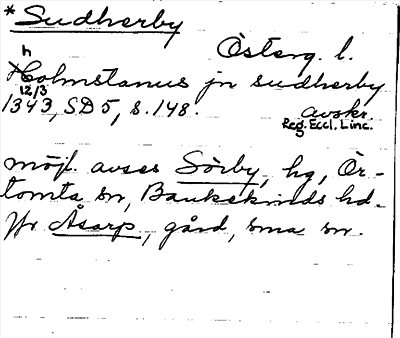 *Sudherby
Österg. l.
Holmstanus jn sudherby
12/3
1343, SD 5, s. 148. avskr.
Reg. Eccl. Linc.
möjl. avses Sörby, hg, Ör-
tomta sn, Bankekinds hd.
Jfr Åsarp, gård, sma sn.